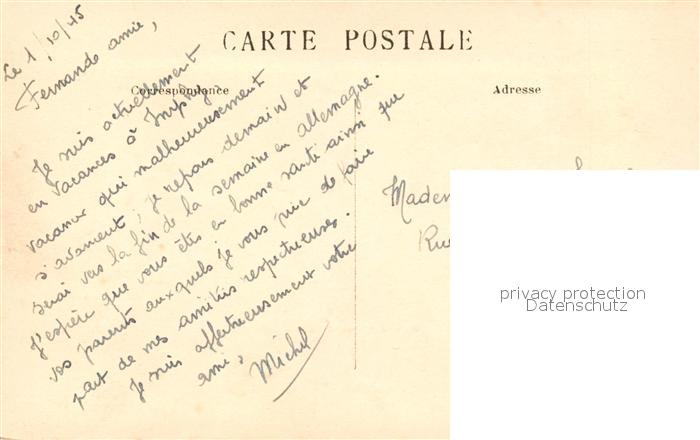 CARTE POSTALE
Correspondance
Adresse
Le 1/10/45
Fernande amie,
Je suis actuellement
en vacances à Imphy
vacances qui malheureusement
s'avancent, je repars demain et
serai vers la fin de la semaine en Allemagne.
J'espère que vous êtes en bonne santé ainsi que
vos parents auxquels je vous prie de faire
part de mes amitiés respectueuses.
Je suis affectueusement votre
ami,
Michel
Madem
Rue
privacy protection
Datenschutz